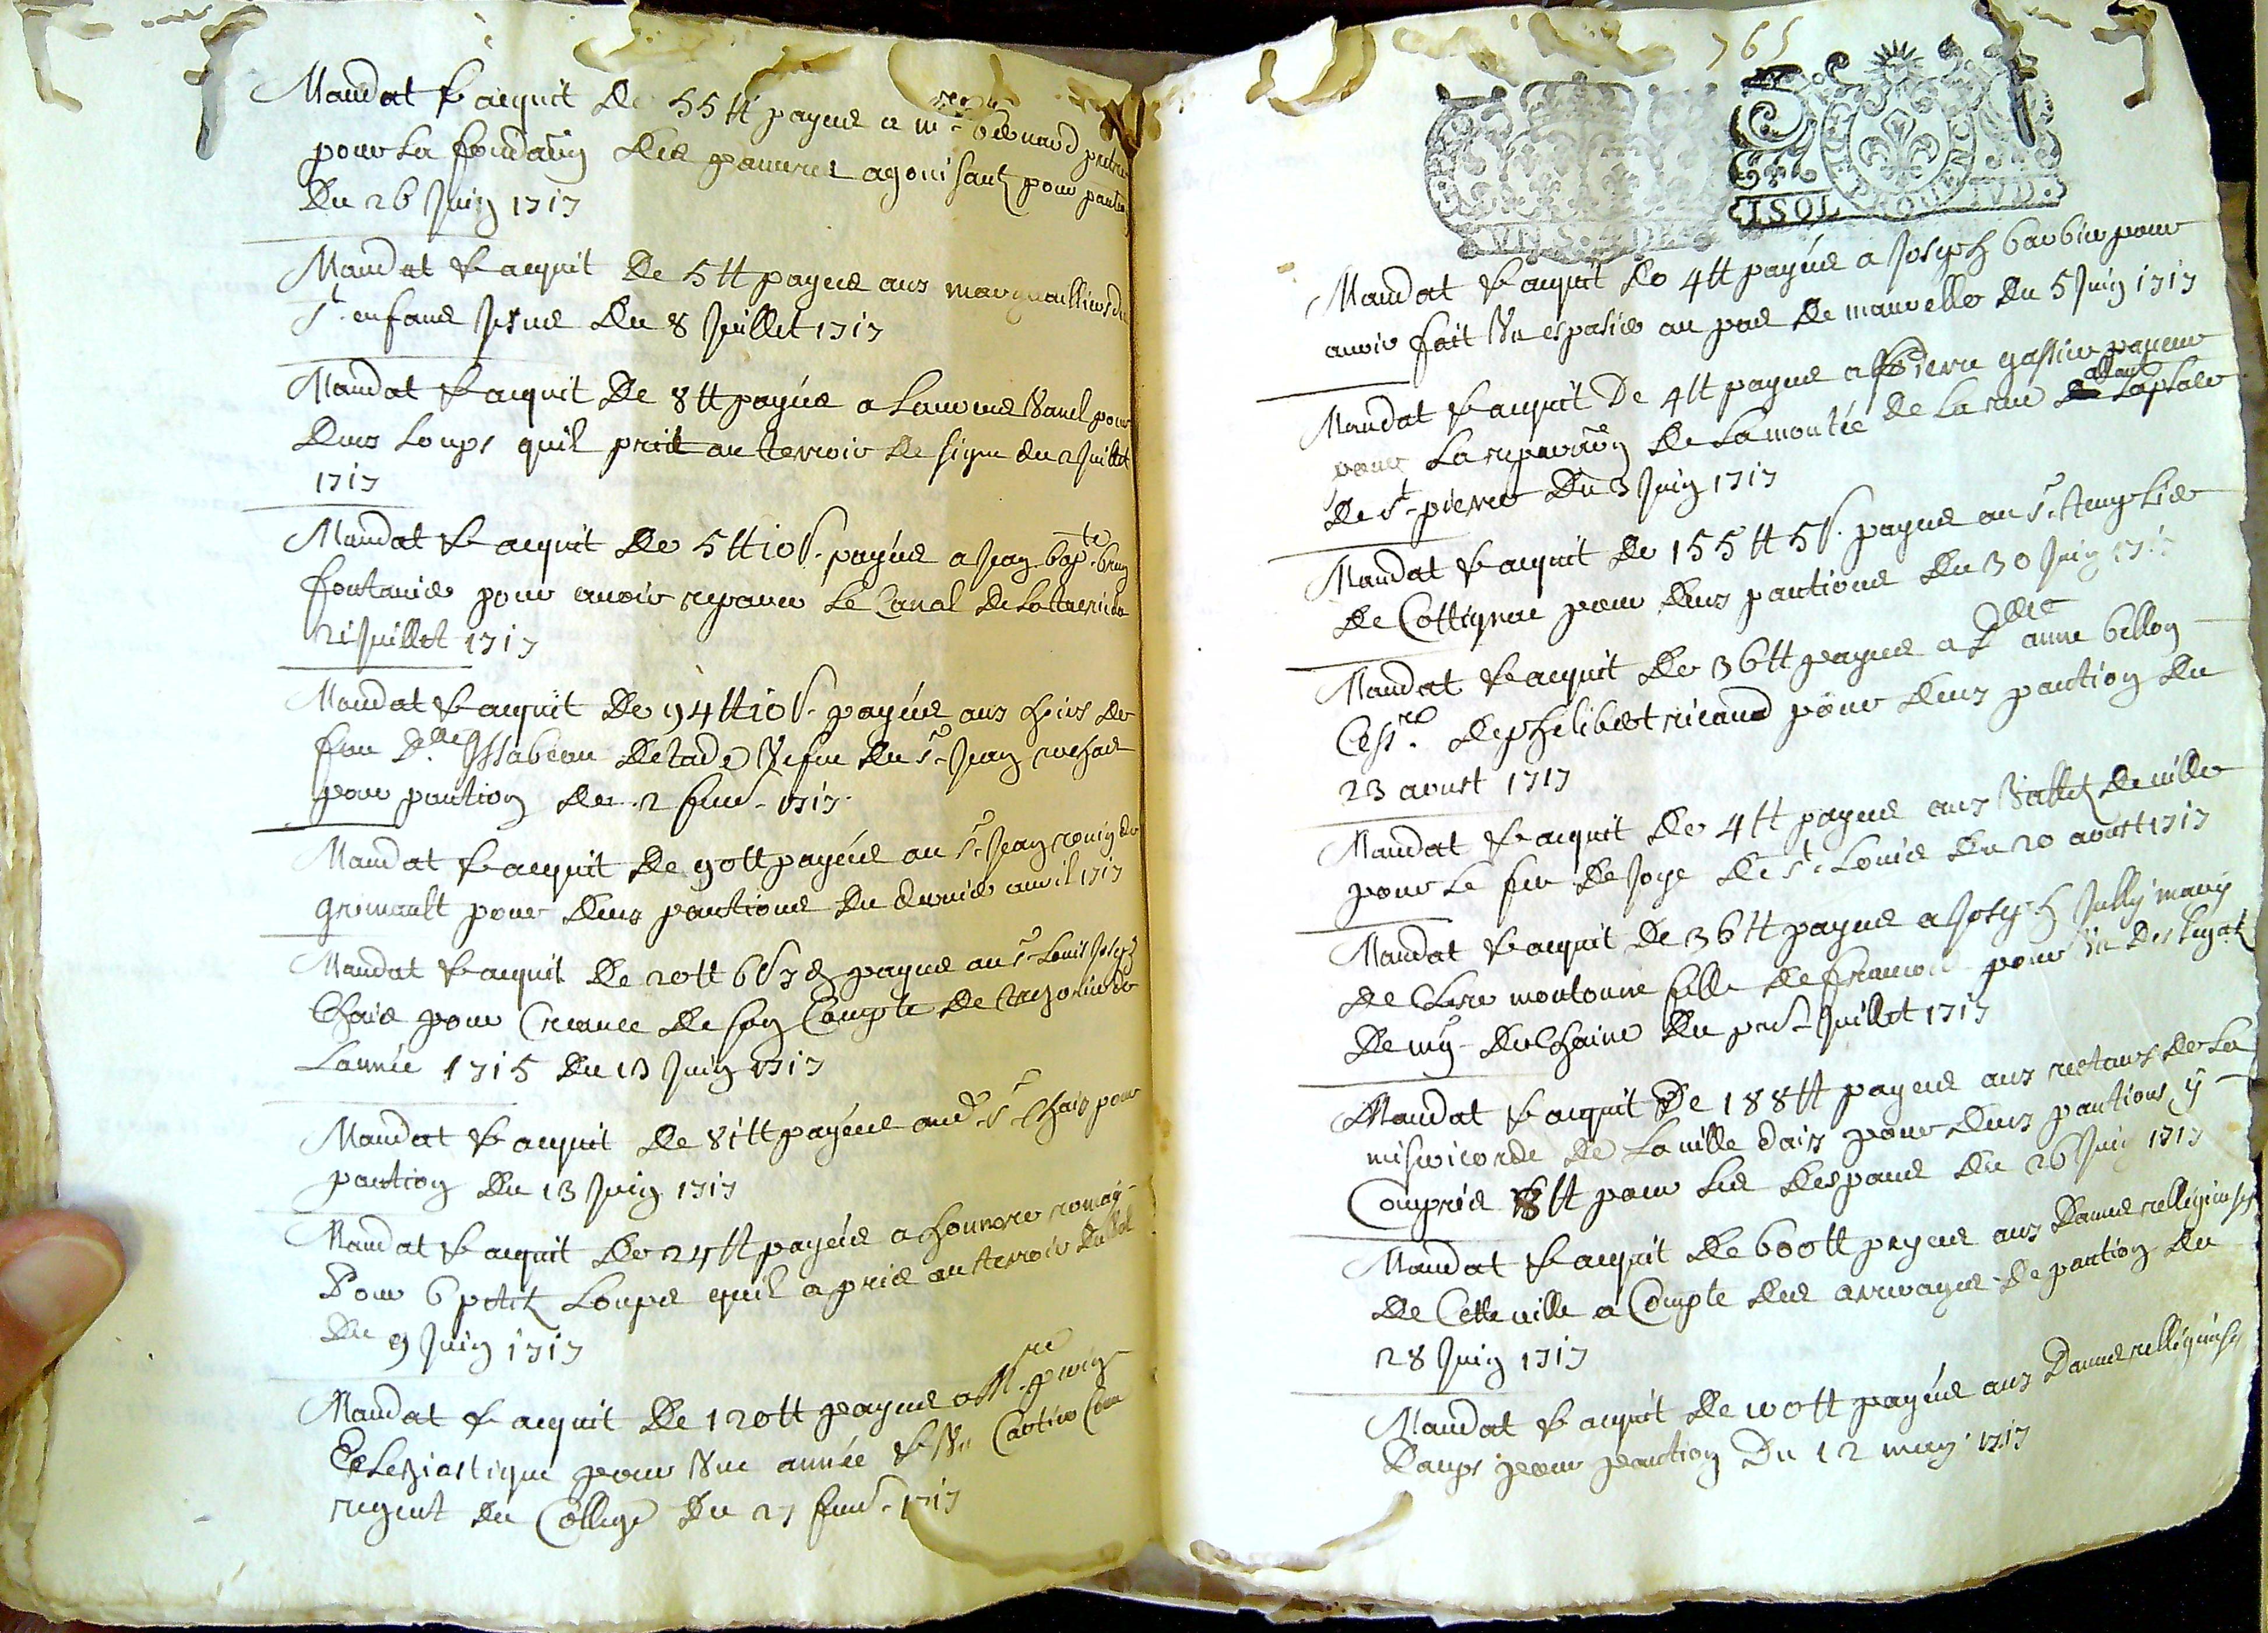 Mandat & acquit De 55 tt payées a m.re bernard prebtre
pour La fondaōn Des pauvres agonisantz pour pantion
Du 26 Juin 1717
Mandat & acquit De 5 tt payées aux marguailliers du
St. enfant Jesus Du 8 Juillet 1717
Mandat & acquit De 8 tt payées a Laurens pour
Deux Loups quil prit au terroir de signe du 2 Juillet
1717
Mandat & acquit De 5 tt 10 s. payées a Jean bap.te brun
fontanier pour avoir reparer Le Canal De La
21 Juillet 1717
Mandat & acquit De 94 tt 10 s. payées aux hoirs de
feu D.lle Issabeau Detade Vefve du Sr. Jean
pour pantion du 2 fevr. 1717.
Mandat & acquit De 90 tt payées au Sr. Jean de
grimault pour Deux pantions Du dernier avril 1717
Mandat & acquit De 20 tt 6 s 7 d payées au Sr. Louis Joseph
Chais pour Creance de son Compte De Tresorier de
Lannée 1715 Du 13 Juin 1717
Mandat & acquit De 81 tt payées aud. Sr. Chais pour
pantion Du 13 Juin 1717
Mandat & acquit De 24 tt payées a honnore roman
Pour 6 petitz Loups quil a pris au terroir
Du 9 Juin 1717
Mandat & acquit De 120 tt payées a M.re
Eclesiastique pour Une année & Un Cartier Comme
regent du College Du 27 fevr. 1717
765
ISOL
Mandat & acquit De 4 tt payées a Joseph barbier pour
avoir fait Un espasier au pas De mauvelle du 5 Juin 1717
Mandat & acquit De 4 tt payées a pierre gassier paveur
pour La reparaōn De La montée de La rue allant Laplace
De St. pierre Du 3 Juin 1717
Mandat & acquit De 155 tt 5 s. payées au Sr.
De Cottignac pour Deux pantions Du 30 Juin 1717
Mandat & acquit De 36 tt payées a D.lle anne bellon
Cess.re De philibert ricaud pour Deux pantion Du
23 aoust 1717
Mandat & acquit De 4 tt payées aux Valletz De ville
pour Le feu De Joye De St. Louis Du 20 aoust 1717
Mandat & acquit De 36 tt payées a Joseph Jully mary
De Clere moutonne fille De francois pour Un Des Legatz
De mr. Duchaine Du pr. Juillet 1717
Mandat & acquit De 188 tt payées aux recteurs de La
misericorde De La ville daix pour Deux pantions y
Compris 8 tt pour Les Despans Du 26 Juin 1717
Mandat & acquit De 600 tt payées aux Dames relligieuses
De Cette ville a Compte Des arreyages De pantion Du
28 Juin 1717
Mandat & acquit De 100 tt payées aux Dames relligieuses
Daups pour pantion Du 12 may 1717